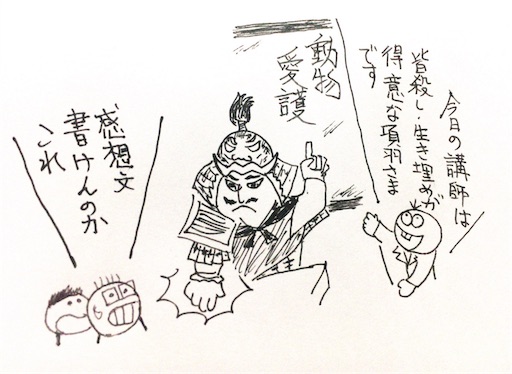 今日の講師は
皆殺し・生き埋めが
得意な項羽さま
です
動物
愛護
感想文
書けんのか
これ